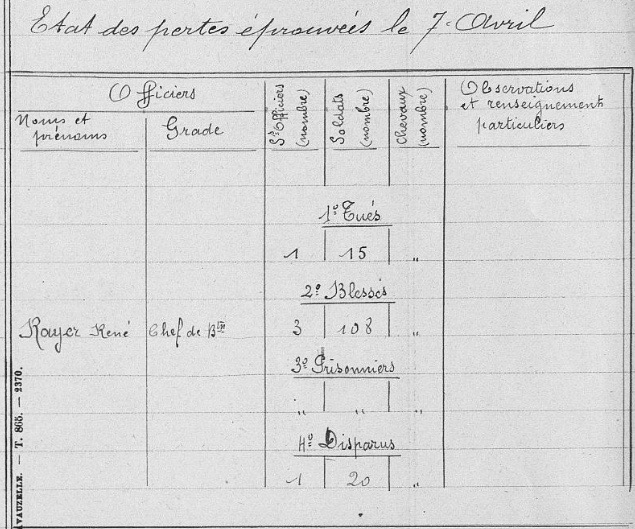 Etat des pertes éprouvées le 7 Avril
Officiers
Noms et prénoms
Grade
Ss Officiers (nombre)
Soldats (nombre)
Chevaux (nombre)
Observations
et renseignement
particuliers
1º Tués
1 15 "
2º Blessés
Royer René Chef de Bon 3 108 "
3º Prisonniers
" " "
4º Disparus
1 20 "
AVAUZELLE. — T. 865. — 2370.